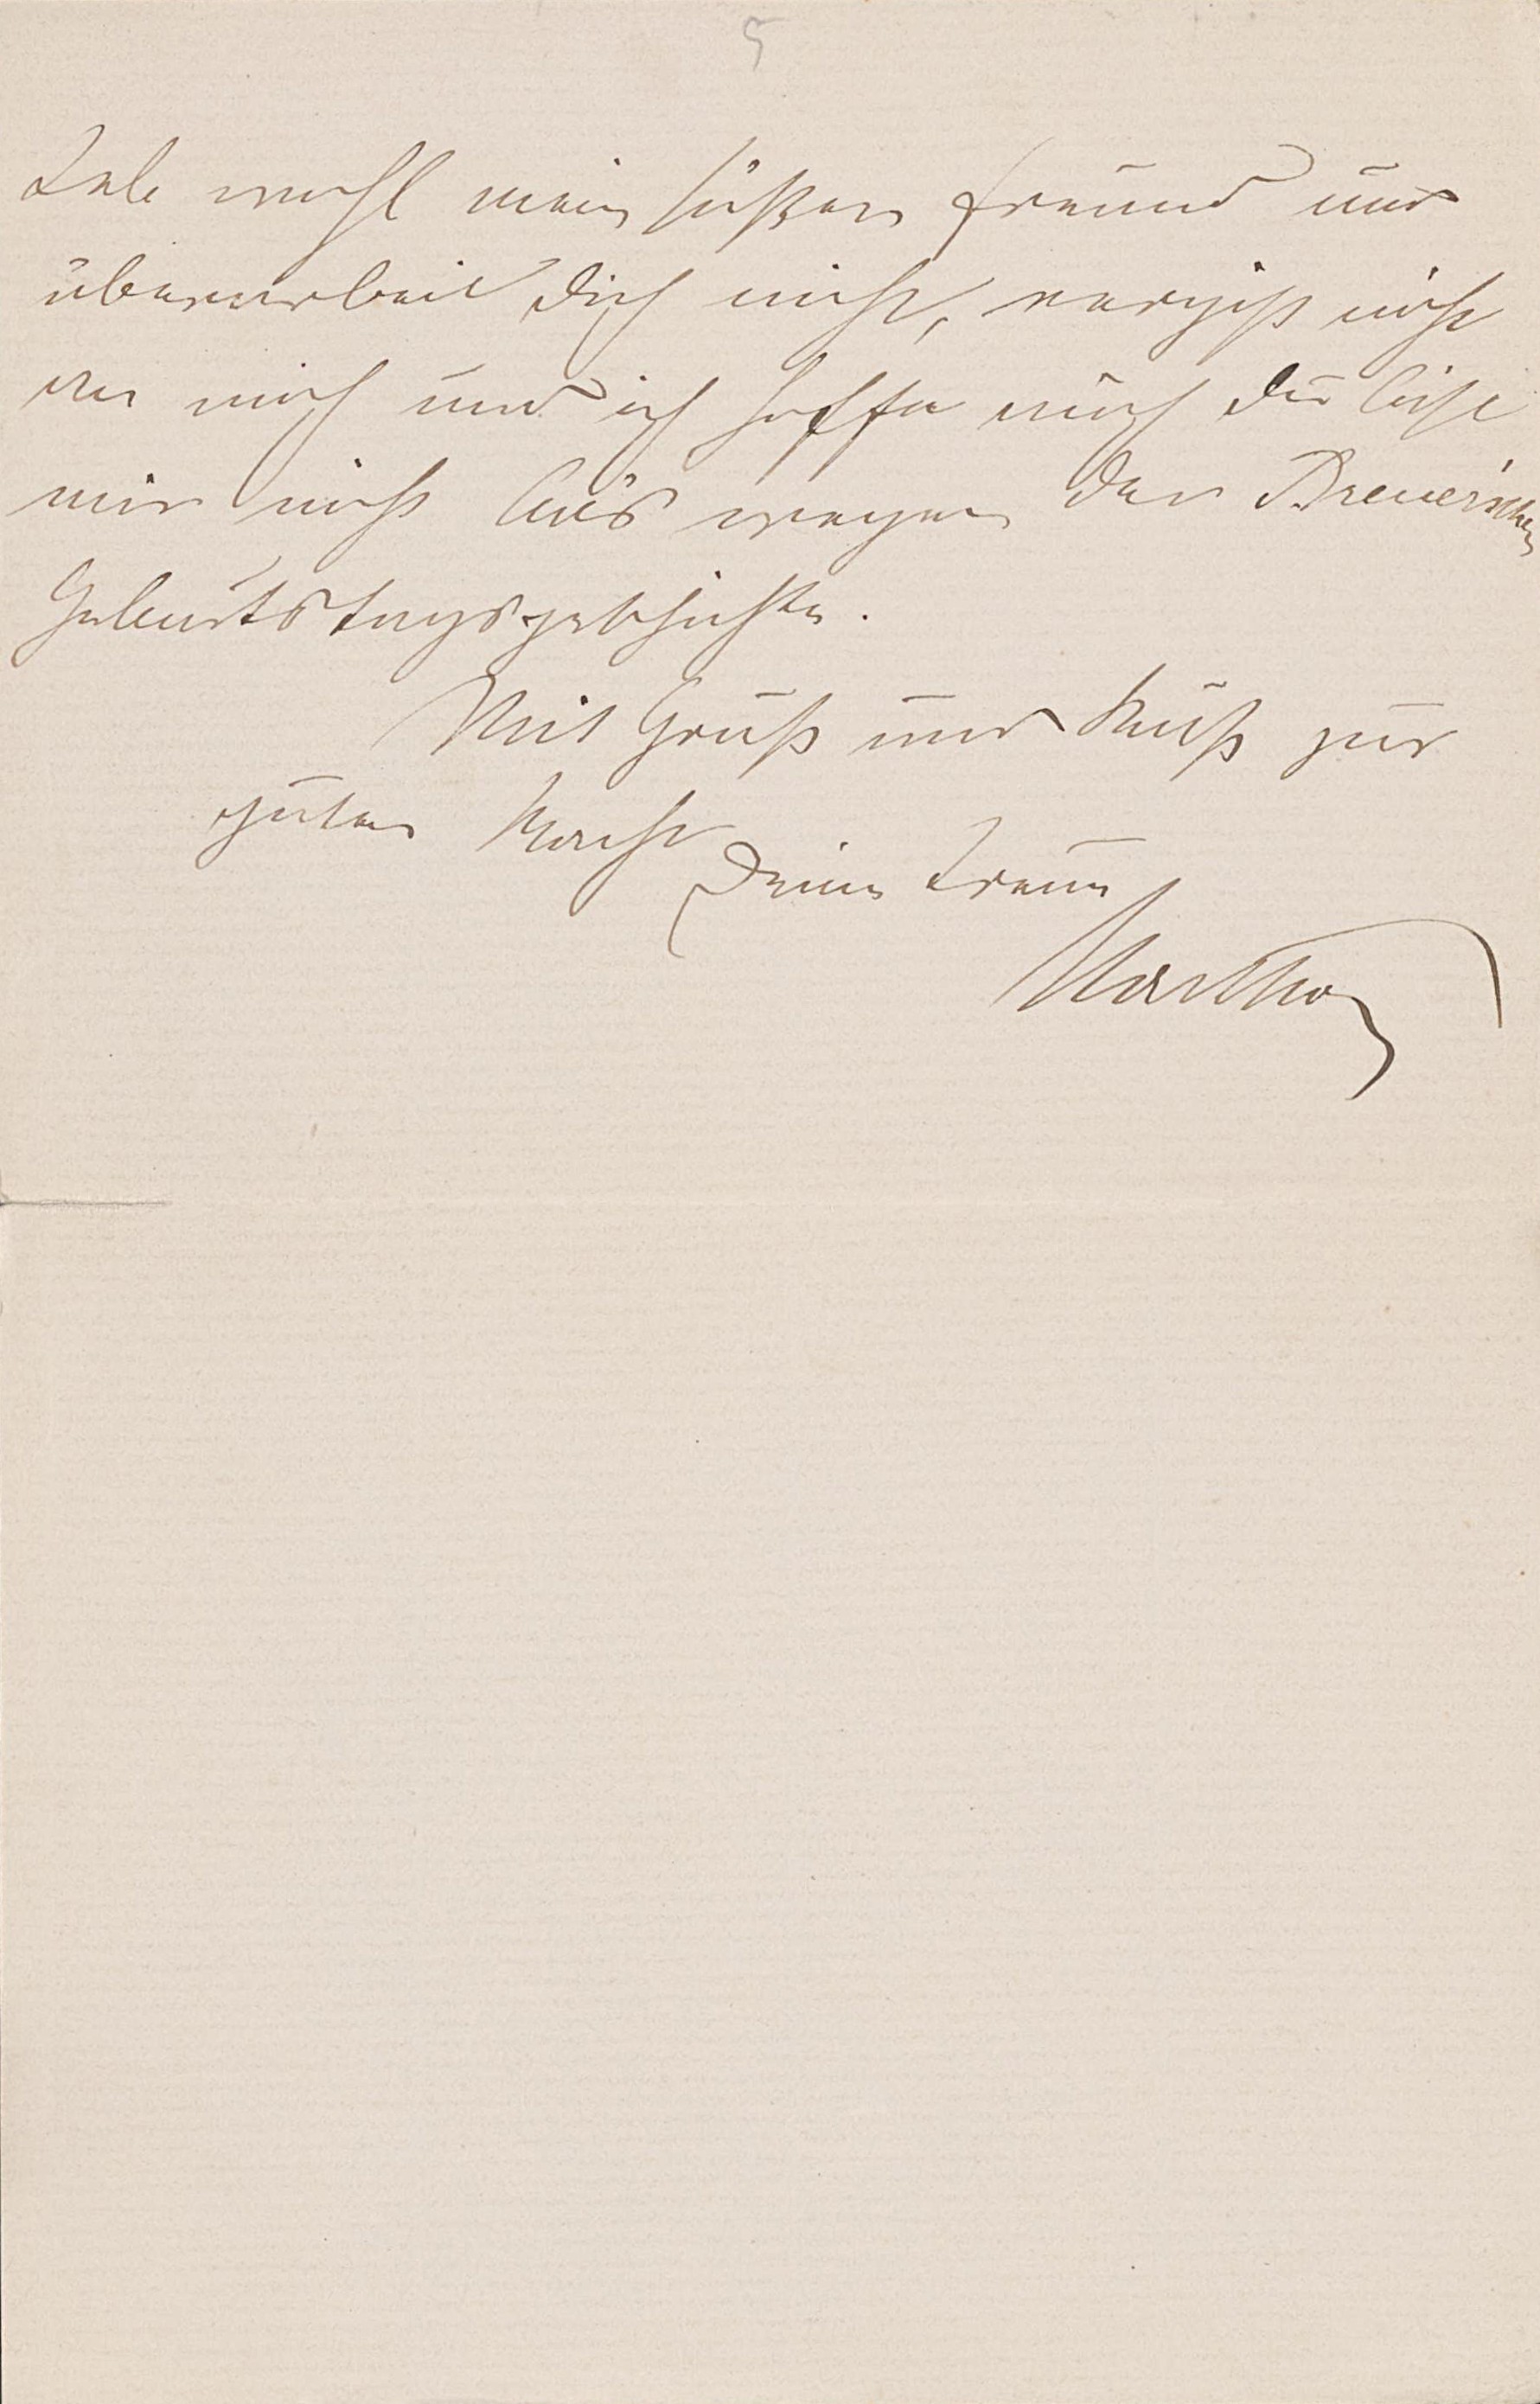 5
Leb wohl mein süßer Freund und
überarbeit Dich nicht, vergiß nicht
an mich und ich hoffe auch Du lachst
mich nicht aus wegen der Breuerischen
Geburtstagsgeschichte.
Mit Gruß und Kuß zur
guten Nacht
Deine treue
Martha